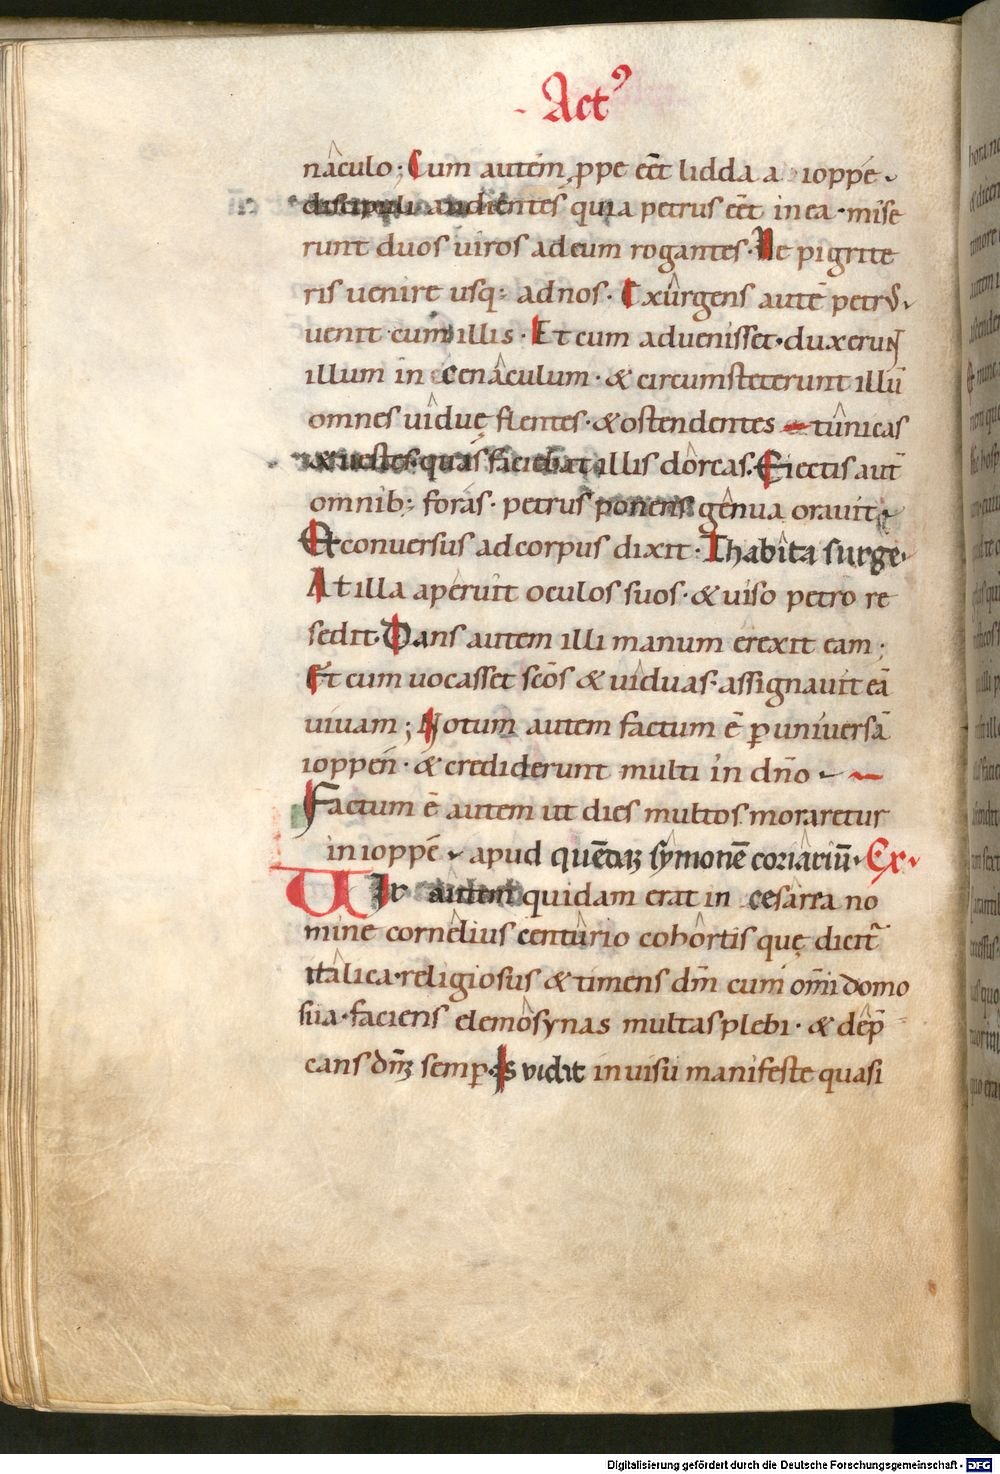 Act⁹
náculo; Cum autem ꝓpe eēt lidda a ioppe
discipuli audientes quia petrus eēt in ea · mise
runt duos uiros ad eum rogantes · Ne pigrite
ris uenire usq; ad nos · Exûrgens autē petrꝰ
uenit cum illis · Et cum aduenisset · duxerunt
illum in cenâculum · & circumsteterunt illū
omnes uîduę flentes · & ostendentes tûnicas
& uestes quas faciebat illis dôrcas. Eiectis aut̄
omnib; foras · petrus ponens gênua orauit
Et conuersus ad corpus dixit · Thabîta surge ·
At illa aperuit oculos suos · & uiso petro re
sedit · Dans autem illi manum erexit eam ;
Et cum uocasset scōs & uîduas · assignauit eā
uiuam ; Notum autem factum ē ꝑ uniuersā
ioppen · & crediderunt multi in dn̄o
Factum ē autem ut dies multos moraretur
in ioppe apud quēdaꝫ sŷmonē coriâriū · Ex
Uir autem quidam erat in cesârea no
mine cornêlius centûrio cohôrtis quę dicit᷑
itâlica · religiosus & timens dm̄ cum om̄i domo
sua · faciens elemôsynas multas plebi · & dep̄
cans dm̄ꝫ semꝑ · Is vidit in uisu manifeste quasi
Digitalisierung gefördert durch die Deutsche Forschungsgemeinschaft - DFG